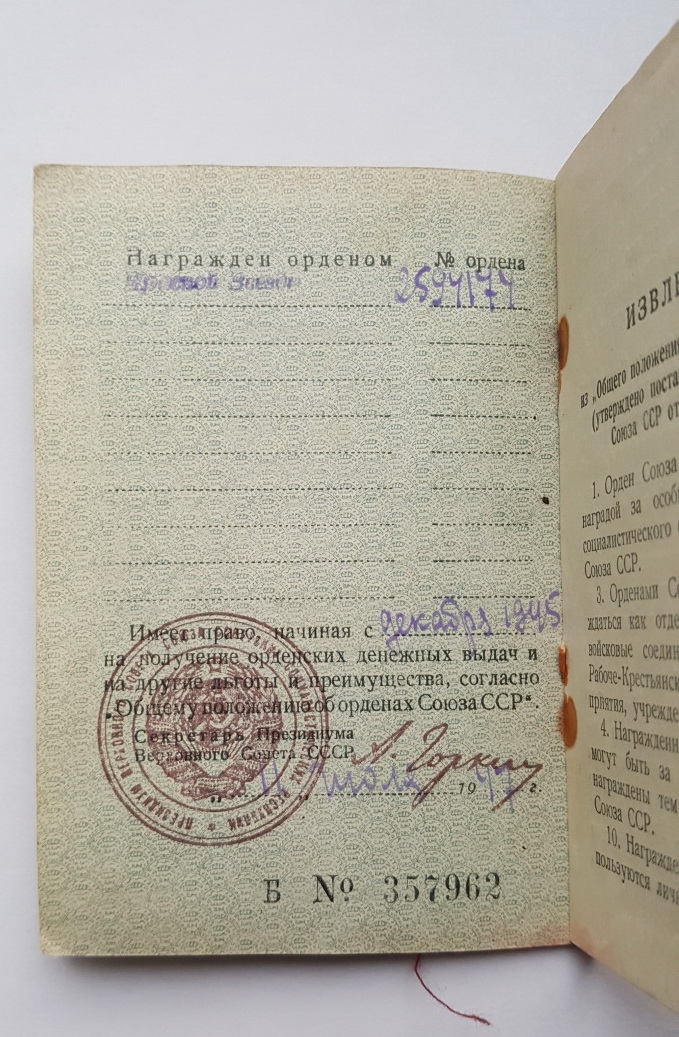 Награжден орденом № ордена
Красной Звезды 2594174
Имеет право, начиная с декабря 1945
на получение орденских денежных выдач и
на другие льготы и преимущества, согласно
"Общему положению об орденах Союза ССР".
Секретарь Президиума
Верховного Совета СССР А. Горкин
„11" июля 1947 г.
Б № 357962
ИЗВЛЕ
из „Общего положения
(утверждено поста
Союза ССР от
1. Орден Союза
наградой за особ
социалистического
Союза ССР.
3. Орденами Со
ждаться как отде
войсковые соедин
Рабоче-Крестьянск
приятия, учрежде
4. Награжденн
могут быть за
награждены тем
Союза ССР.
10. Награжде
пользуются личн